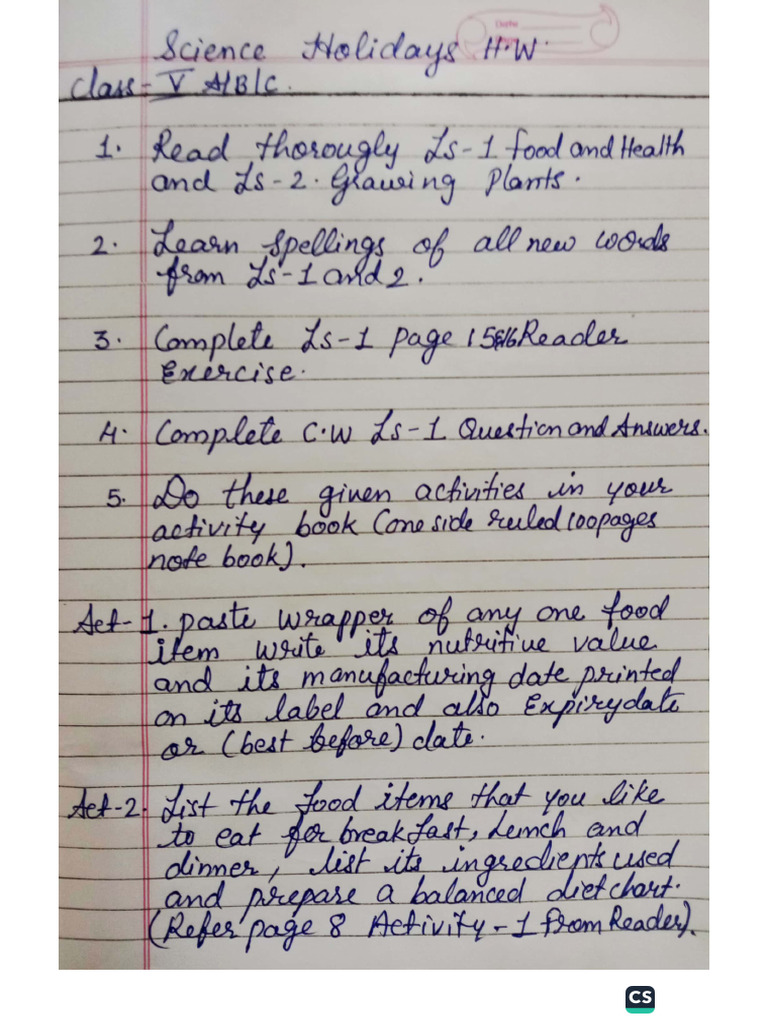 Science Holidays H.W.
Class - V A/B/C.
1. Read thorougly Ls-1 food and Health
and Ls-2. Growing Plants.
2. Learn spellings of all new words
from Ls-1 and 2.
3. Complete Ls-1 page 15&16 Reader
Exercise.
4. Complete C.W Ls-1 Question and Answers.
5. Do these given activities in your
activity book (one side ruled 100pages
note book).
Act-1. paste wrapper of any one food
item write its nutritive value
and its manufacturing date printed
on its label and also Expiry date
or (best before) date.
Act-2. List the food items that you like
to eat for breakfast, Lunch and
dinner, list its ingredients used
and prepare a balanced diet chart.
(Refer page 8 Activity-1 from Reader).
CS